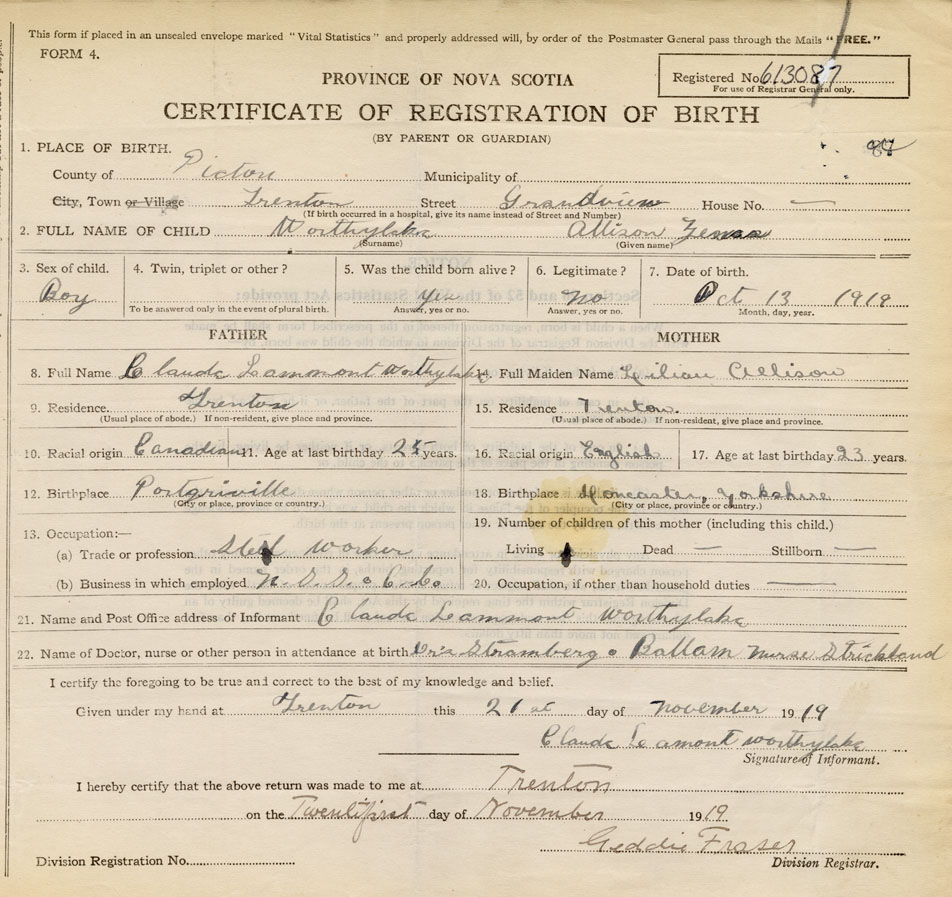 This form if placed in an unsealed envelope marked "Vital Statistics" and properly addressed will, by order of the Postmaster General pass through the Mails "FREE."
FORM 4.
Registered No. 613087
For use of Registrar General only.
PROVINCE OF NOVA SCOTIA
CERTIFICATE OF REGISTRATION OF BIRTH
(BY PARENT OR GUARDIAN)
87
1. PLACE OF BIRTH.
County of Pictou Municipality of
City, Town or Village Trenton Street Grandview House No. —
(If birth occurred in a hospital, give its name instead of Street and Number)
2. FULL NAME OF CHILD Worthylake Allison
(Surname) (Given name)
3. Sex of child. 4. Twin, triplet or other? 5. Was the child born alive? 6. Legitimate? 7. Date of birth.
Boy yes no Oct 13 1919
To be answered only in the event of plural birth. Answer, yes or no. Answer, yes or no. Month, day, year.
FATHER
8. Full Name Claude Lammont Worthylake
9. Residence. Trenton
(Usual place of abode.) If non-resident, give place and province.
10. Racial origin Canadian 11. Age at last birthday 25 years.
12. Birthplace Portgriville
(City or place, province or country.)
13. Occupation:—
(a) Trade or profession Steel Worker
(b) Business in which employed N. S. S. & C. Co.
MOTHER
14. Full Maiden Name Lilian Allison
15. Residence Trenton.
(Usual place of abode.) If non-resident, give place and province.
16. Racial origin English 17. Age at last birthday 23 years.
18. Birthplace Doncaster, Yorkshire
(City or place, province or country.)
19. Number of children of this mother (including this child.)
Living 1 Dead — Stillborn —
20. Occupation, if other than household duties —
21. Name and Post Office address of Informant Claude Leammont Worthylake
22. Name of Doctor, nurse or other person in attendance at birth Drs Stramberg & Ballam Nurse Strickland
I certify the foregoing to be true and correct to the best of my knowledge and belief.
Given under my hand at Trenton this 21st day of November 1919
Claude Leamont Worthylake
Signature of Informant.
I hereby certify that the above return was made to me at Trenton
on the Twentifirst day of November 1919
Geddie Fraser
Division Registration No. Division Registrar.